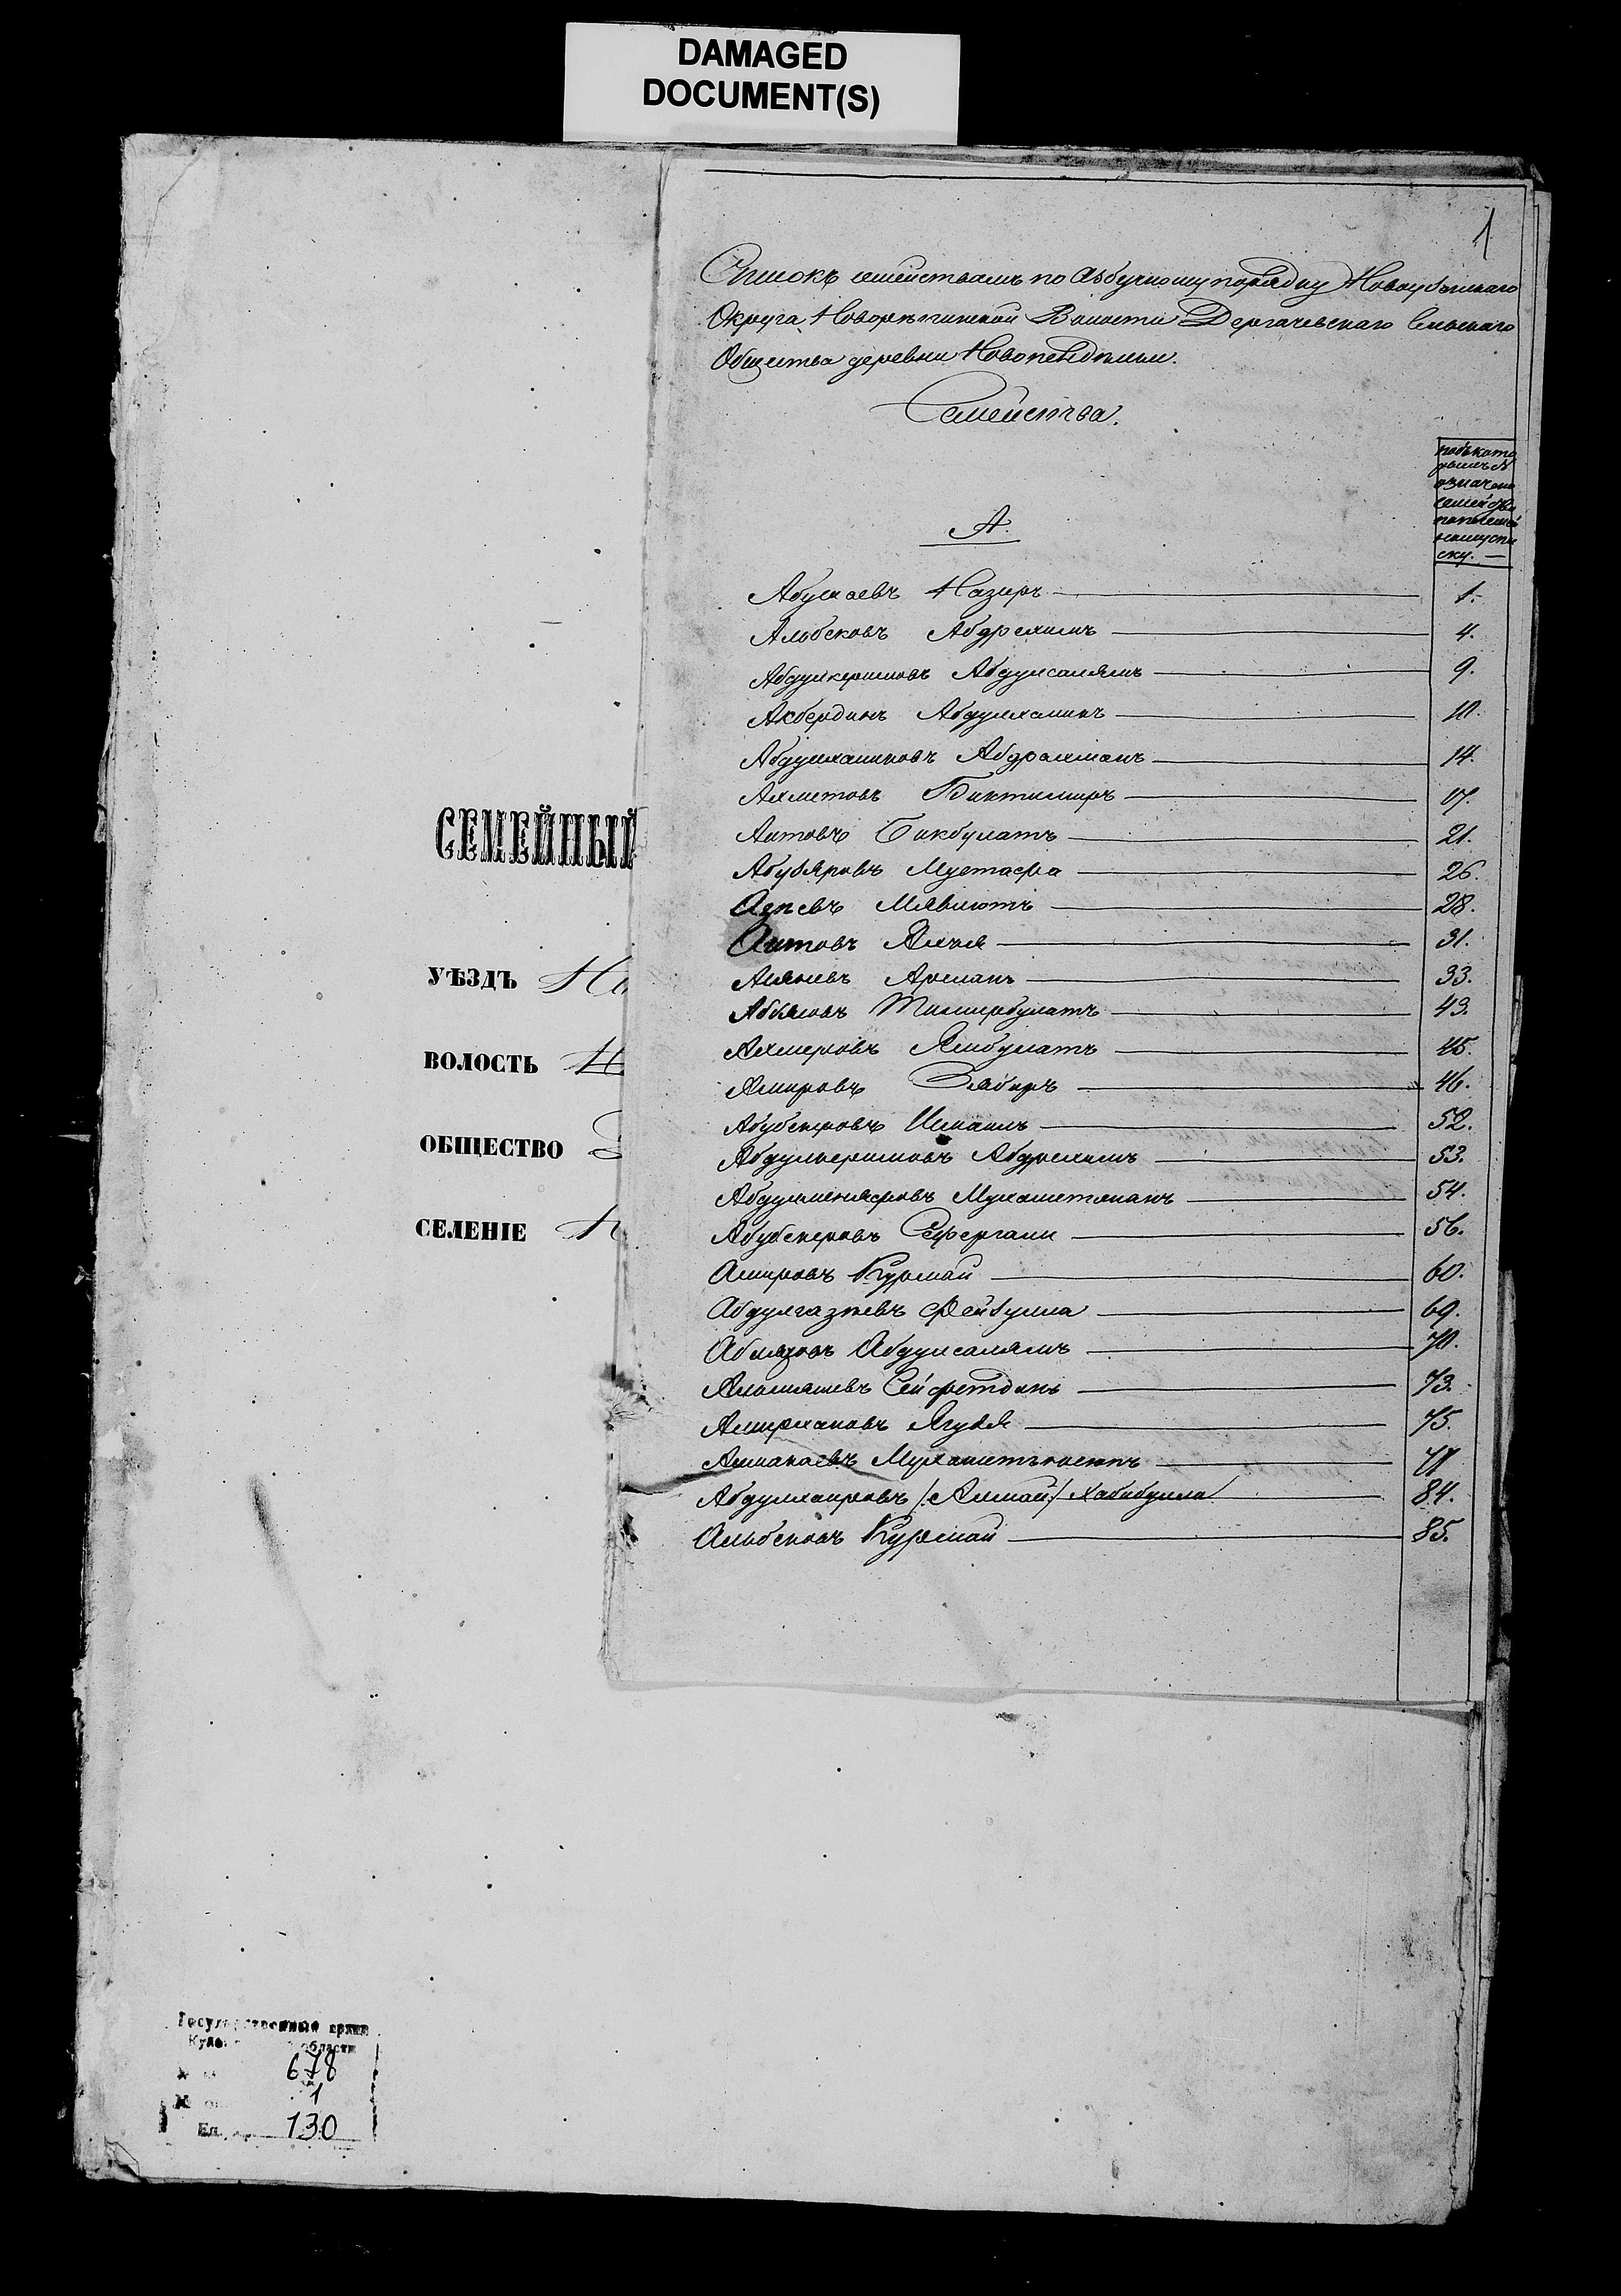 DAMAGED
DOCUMENT(S)
1
Списокъ семействамъ по Азбучному порядку Новоузенскаго
Округа Новорѣпинской Волости Дергачевскаго Сельскаго
Общества деревни
Семейства.
подъ кото
рымъ №
означено
семейство
по посемей
ному спи
ску. —
А.
Абушаевъ Назиръ 1.
Альбековъ Абдрехимъ 4.
Абдулкеримовъ Абдулсалямъ 9.
Акбердинъ Абдулхаликъ 10.
Абдулхаликовъ Абдрахманъ 14.
Ахметовъ Биктимиръ 17.
Аитовъ Бикбулатъ 21.
Абузяровъ Мустафа 26.
Мявлютъ 28.
Аитовъ 31.
Арсланъ 33.
Абѣловъ Тимирбулатъ 43.
Ахмеровъ Ямбулатъ 45.
Амировъ Зябиръ 46.
Абубекировъ Исмаилъ 52.
Абдулкеримовъ Абдрехимъ 53.
Абдулменяфовъ Мухаметжанъ 54.
Абубекеровъ Сефергали 56.
Амировъ Курмай 60.
Абдулгазѣевъ Фейзулла 69.
Аблязовъ Абдулсалямъ 70.
Сейфетдинъ 73.
Амирхановъ Ягуя 75.
Алманаевъ 77
Абдулхаировъ /:Алмай:/ Хабибулла 84.
Альбековъ Курмай 85.
СЕМЕЙНЫЙ
УѢЗДЪ Но
ВОЛОСТЬ Н
ОБЩЕСТВО
СЕЛЕНІЕ Н
Государственный архив
области
678
1
Ед. 130